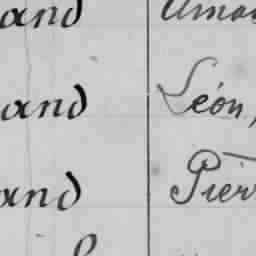 and Aman
and Léon,
and Pier